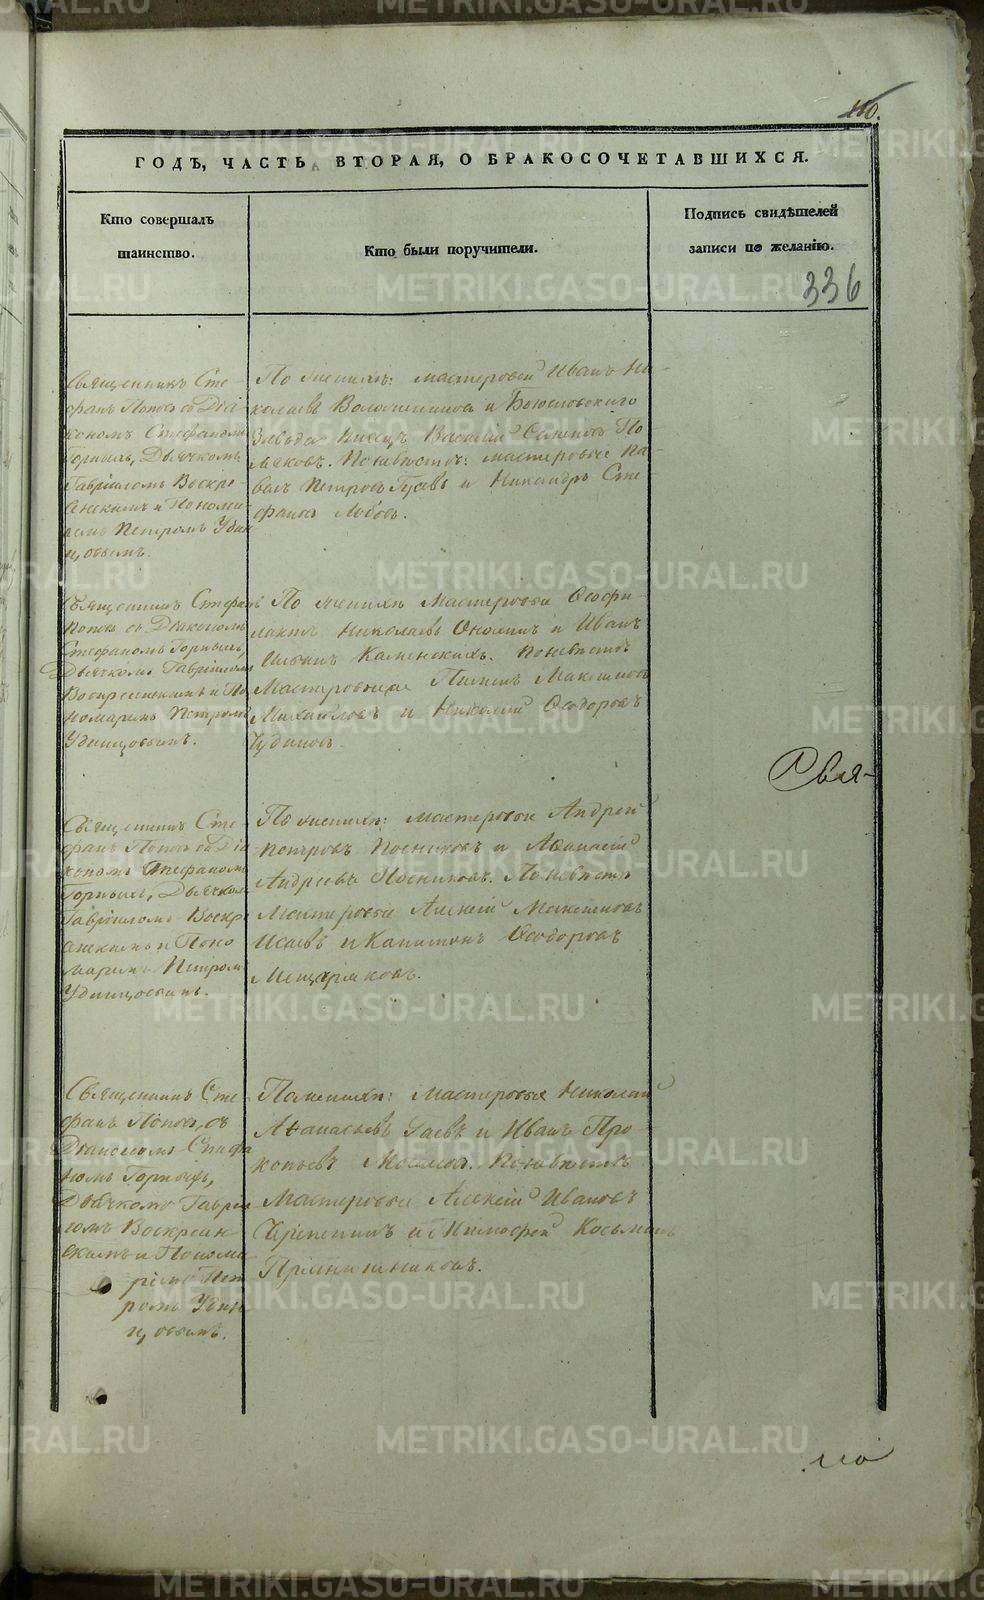 110.
ГОДЪ, ЧАСТЬ ВТОРАЯ, О БРАКОСОЧЕТАВШИХСЯ.
Кто совершалъ
таинство.
Кто были поручители.
Подпись свидѣтелей
записи по желанію.
336
Священникъ Сте-
фанъ Поповъ съ Діа-
кономъ Стефаномъ
Горныхъ, Дьячкомъ
Гавріиломъ Воскре-
сенскимъ и Понома-
ремъ Петромъ Удин
цовымъ.
По женихѣ: мастеровой Иванъ Ни-
колаевъ и Богословского
Завода Василій По-
ляковъ. По невѣстѣ: мастеровые Па-
велъ Петровъ Гусевъ и Никандръ Сте
фановъ Лобовъ.
Священникъ Стефанъ
Поповъ съ Діакономъ
Стефаномъ Горныхъ,
Дьячкомъ Гавріиломъ
Воскресенскимъ и По
номаремъ Петромъ
Удинцовымъ.
По женихѣ Мастеровые Ѳеофи-
лактъ Николаевъ и Иванъ
Каменскихъ. По невѣстѣ
Мастеровые Пименъ Максимовъ
Михайловъ и Николай Ѳедоровъ
Чудиновъ.
Свя-
Священникъ Сте-
фанъ Поповъ съ Діа
кономъ Стефаномъ
Горныхъ, Дьячком
Гавріиломъ Воскре
сенскимъ и Поно
маремъ Петромъ
Удинцовымъ.
По женихѣ: мастеровые Андрей
Петровъ Посниковъ и Аѳанасій
Андреевъ Посниковъ. По невѣстѣ
Мастеровые Алексѣй Максимовъ
Исаевъ и Капитонъ Ѳеодоровъ
Мещеряковъ.
Священникъ Сте
фанъ Поповъ, съ
Діакономъ Стефа
номъ Горныхъ,
Дьячкомъ Гаврiи
ломъ Воскресен
скимъ и Понома
ремъ Пет
ромъ Удин
цовымъ.
По женихѣ: мастеровые Николай
Аѳанасьевъ Гаевъ и Иванъ Про
копьевъ По невѣстѣ
Мастеровые Алексѣй Ивановъ
Черепанинъ и Тимофей Косьминъ
Пряничниковъ.
METRIKI.GASO-URAL.RU